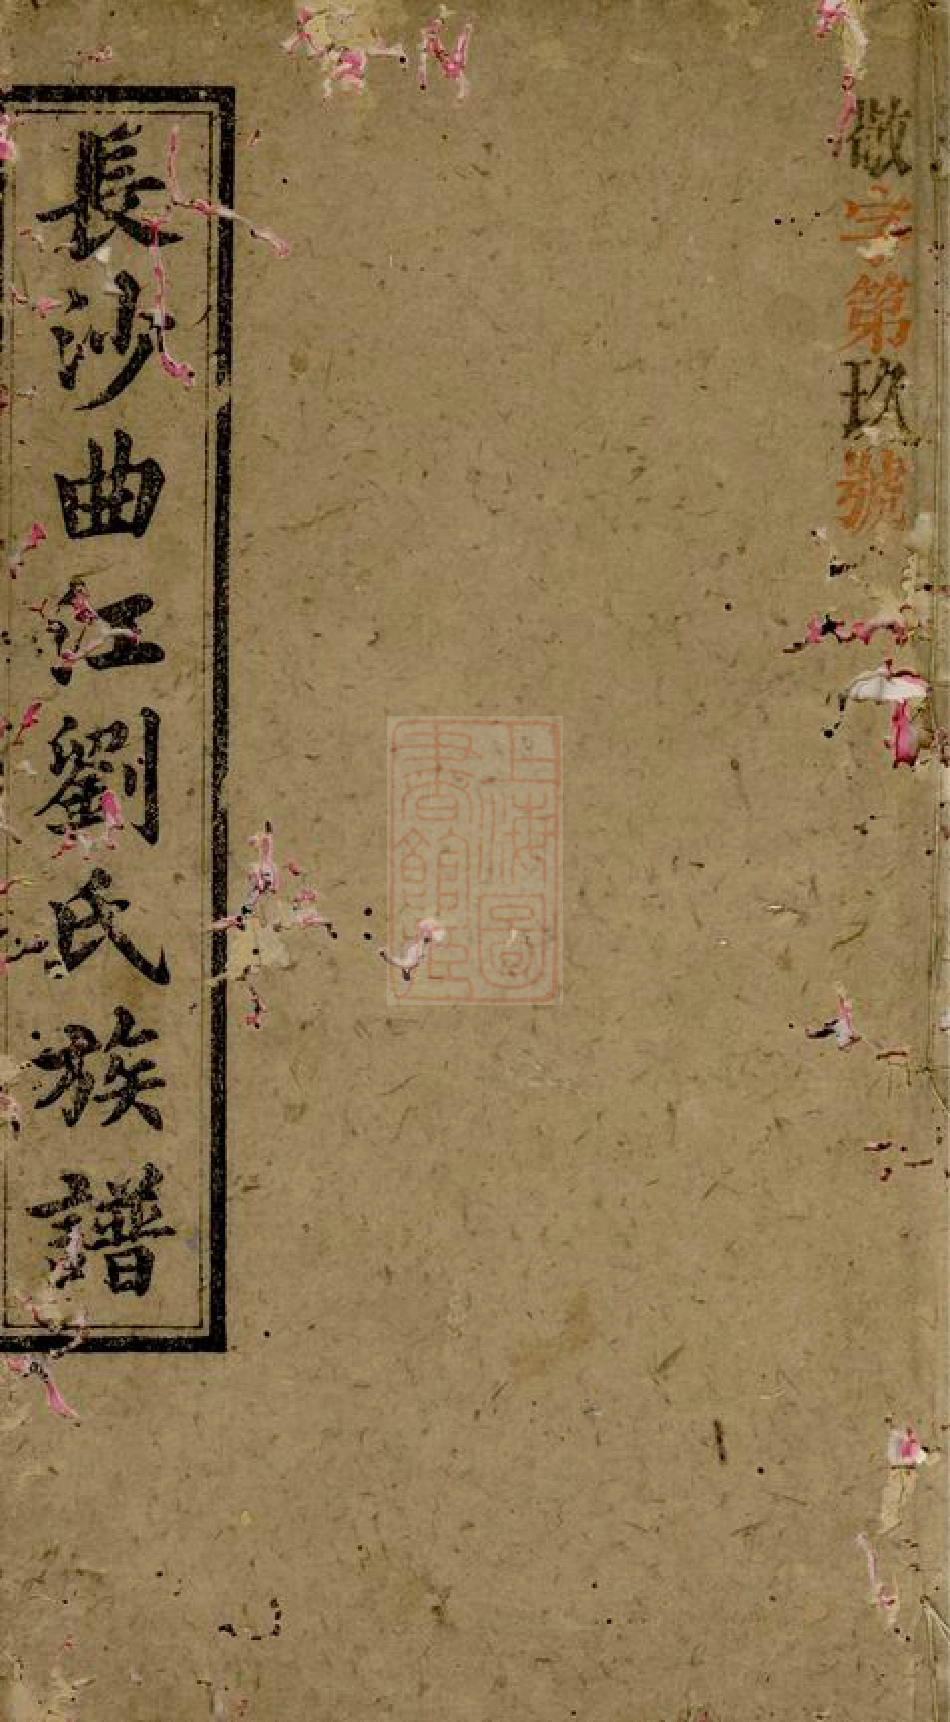 敬字第玖號
上海圖書館藏
長沙曲江劉氏族譜